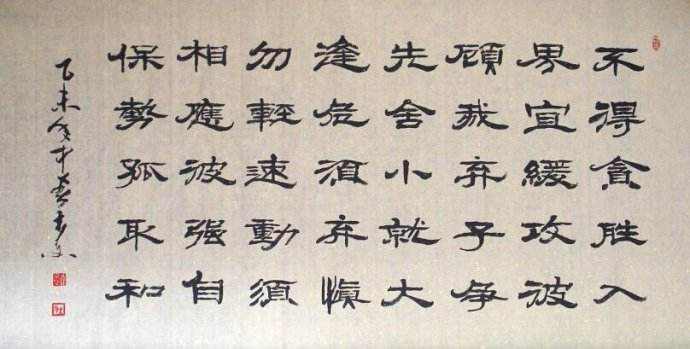 不得貪胜入
界宜緩攻彼
顧我弃子争
先舍小就大
逢危須弃慎
勿輕速動須
相應彼强自
保勢孤取和
乙未